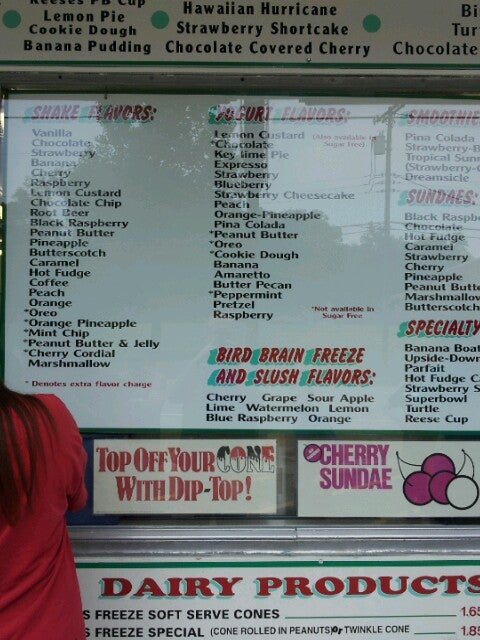 Reeses PB Cup
Lemon Pie
Cookie Dough
Banana Pudding
Hawaiian Hurricane
Strawberry Shortcake
Chocolate Covered Cherry
Bi
Tur
Chocolate
SHAKE FLAVORS:
Vanilla
Chocolate
Strawberry
Banana
Cherry
Raspberry
Lemon Custard
Chocolate Chip
Root Beer
Black Raspberry
Peanut Butter
Pineapple
Butterscotch
Caramel
Hot Fudge
Coffee
Peach
Orange
*Oreo
*Orange Pineapple
*Mint Chip
*Peanut Butter & Jelly
*Cherry Cordial
Marshmallow
* Denotes extra flavor charge
YOGURT FLAVORS:
Lemon Custard (Also available in
Sugar Free)
*Chocolate
Key lime Pie
Expresso
Strawberry
Blueberry
Strawberry Cheesecake
Peach
Orange-Pineapple
Pina Colada
*Peanut Butter
*Oreo
*Cookie Dough
Banana
Amaretto
Butter Pecan
*Peppermint
Pretzel
Raspberry
*Not available in
Sugar Free
BIRD BRAIN FREEZE
AND SLUSH FLAVORS:
Cherry Grape Sour Apple
Lime Watermelon Lemon
Blue Raspberry Orange
SMOOTHIE
Pina Colada
Strawberry-B
Tropical Sun
(Strawberry-
Dreamsicle
SUNDAES:
Black Raspb
Chocolate
Hot Fudge
Caramel
Strawberry
Cherry
Pineapple
Peanut Butt
Marshmallow
Butterscotch
SPECIALTY
Banana Boat
Upside-Down
Parfait
Hot Fudge C
Strawberry S
Superbowl
Turtle
Reese Cup
TOP OFF YOUR CONE
WITH DIP-TOP!
CHERRY
SUNDAE
DAIRY PRODUCTS
S FREEZE SOFT SERVE CONES 1.65
S FREEZE SPECIAL (CONE ROLLED IN PEANUTS) or TWINKLE CONE 1.85